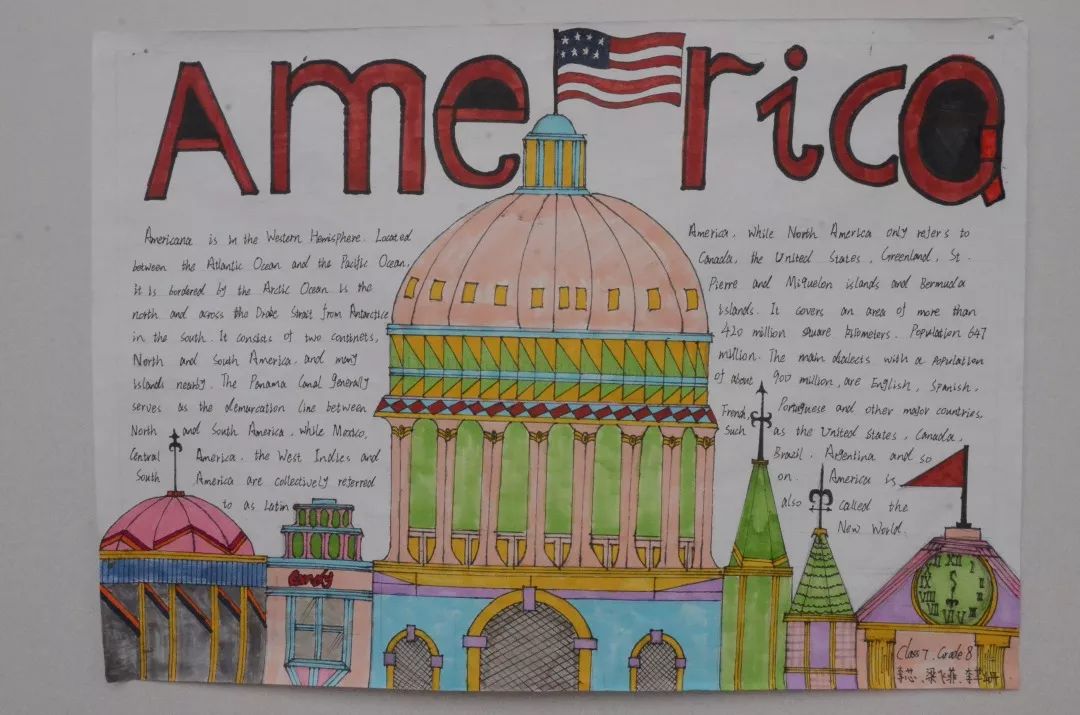 America
Americana is in the Western Hemisphere. Located
between the Atlantic Ocean and the Pacific Ocean,
it is bordered by the Arctic Ocean is the
north and across the Drake Strait from Antarctica
in the south. It consists of two continets,
North and South America, and many
islands nearby. The Panama Canal generally
serves as the demurcation line between
North and South America, while Mexico,
Central America, the West Indies and
South America are collectively referred
to as Latin
America, while North America only refers to
Canada, the United States, Greenland, St.
Pierre and Miquelon islands and Bermuda
islands. It covers an area of more than
420 million square kilometers. Population 647
million. The main dialects with a population
of about 900 million, are English, Spanish,
French, Portuguese and other major countries,
such as the United States, Canada,
Brazil, Argentina and so
on. America is
also called the
New World.
Candy
XII I II III IIII V VI VII VIII IX X XI
Class 7, Grade 8